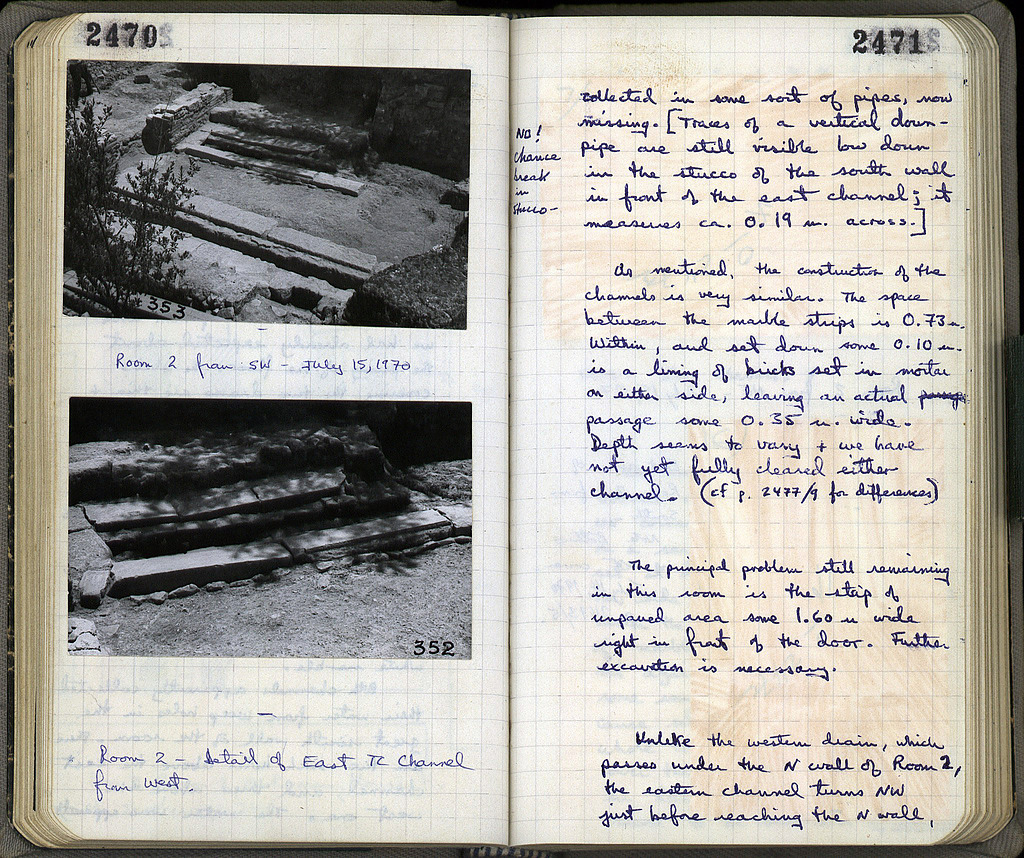 2470
353
Room 2 from SW - July 15, 1970
352
Room 2 - Detail of East TC Channel
from West.
2471
collected in some sort of pipes, now
missing. [Traces of a vertical down-
pipe are still visible low down
in the stucco of the south wall
in front of the east channel; it
measures ca. 0.19 m. across.]
NO!
chance
break
in
stucco-
As mentioned, the construction of the
channels is very similar. The space
between the marble strips is 0.73 m.
Within, and set down some 0.10 m.
is a lining of bricks set in mortar
on either side, leaving an actual
passage some 0.35 m. wide.
Depth seems to vary + we have
not yet fully cleared either
channel. (cf p. 2477/9 for differences)
The principal problem still remaining
in this room is the strip of
unpaved area some 1.60 m wide
right in front of the door. Further
excavation is necessary.
Unlike the western drain, which
passes under the N wall of Room 2,
the eastern channel turns NW
just before reaching the N wall,